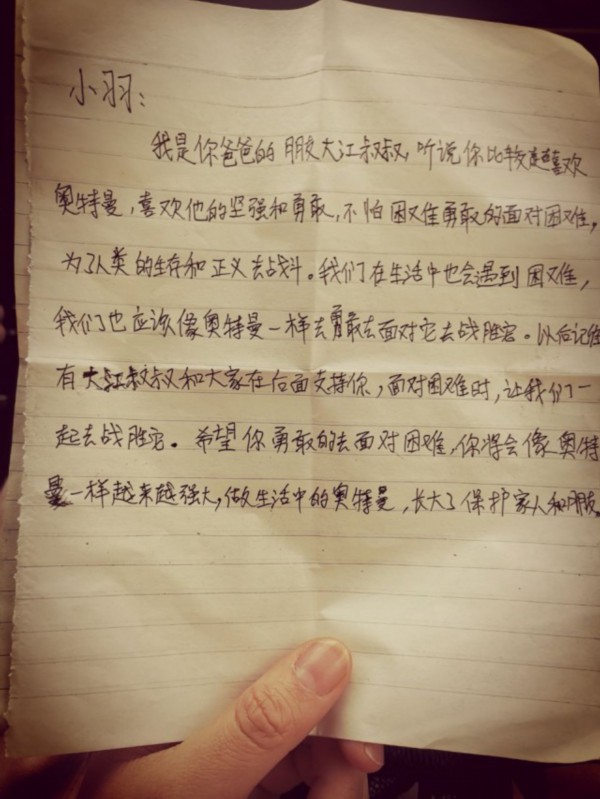 小羽：
我是你爸爸的朋友大江叔叔,听说你比较喜欢
奥特曼，喜欢他的坚强和勇敢,不怕困难勇敢的面对困难,
为了人类的生存和正义去战斗。我们在生活中也会遇到困难,
我们也应该像奥特曼一样去勇敢去面对它去战胜它。以后记住
有大江叔叔和大家在后面支持你,面对困难时,让我们一
起去战胜它。希望你勇敢的去面对困难,你将会像奥特
曼一样越来越强大,做生活中的奥特曼,长大了保护家人和朋友。